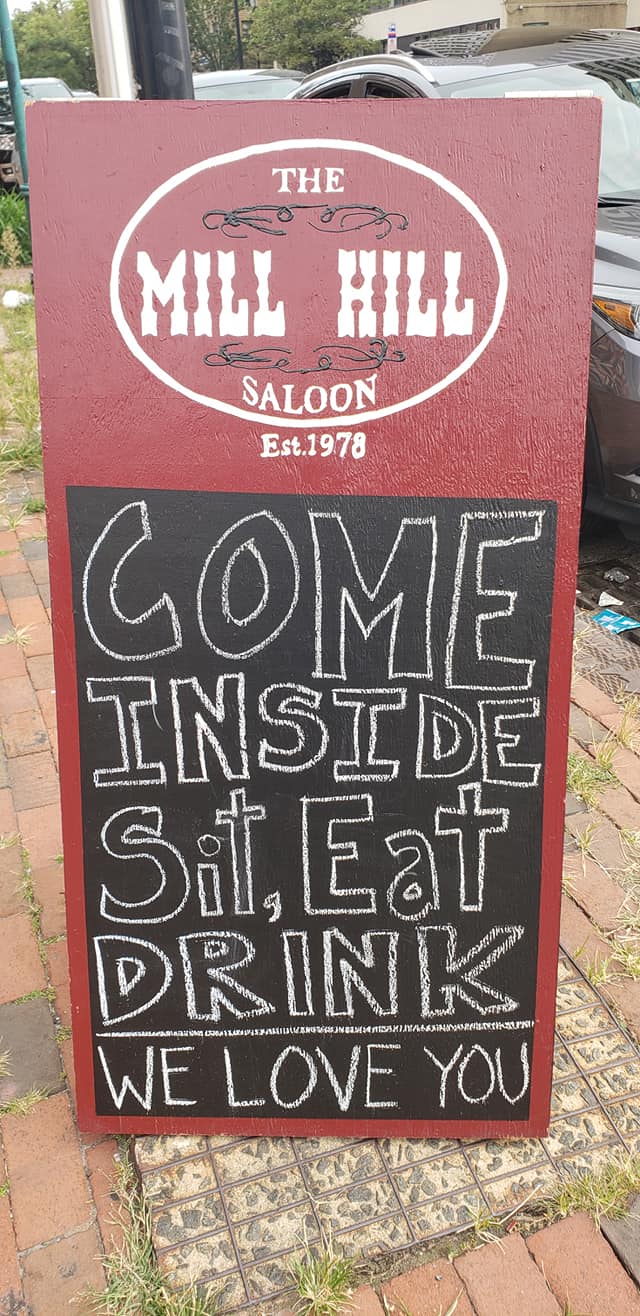 THE
MILL HILL
SALOON
Est.1978
COME
INSIDE
Sit, Eat
DRINK
WE LOVE YOU